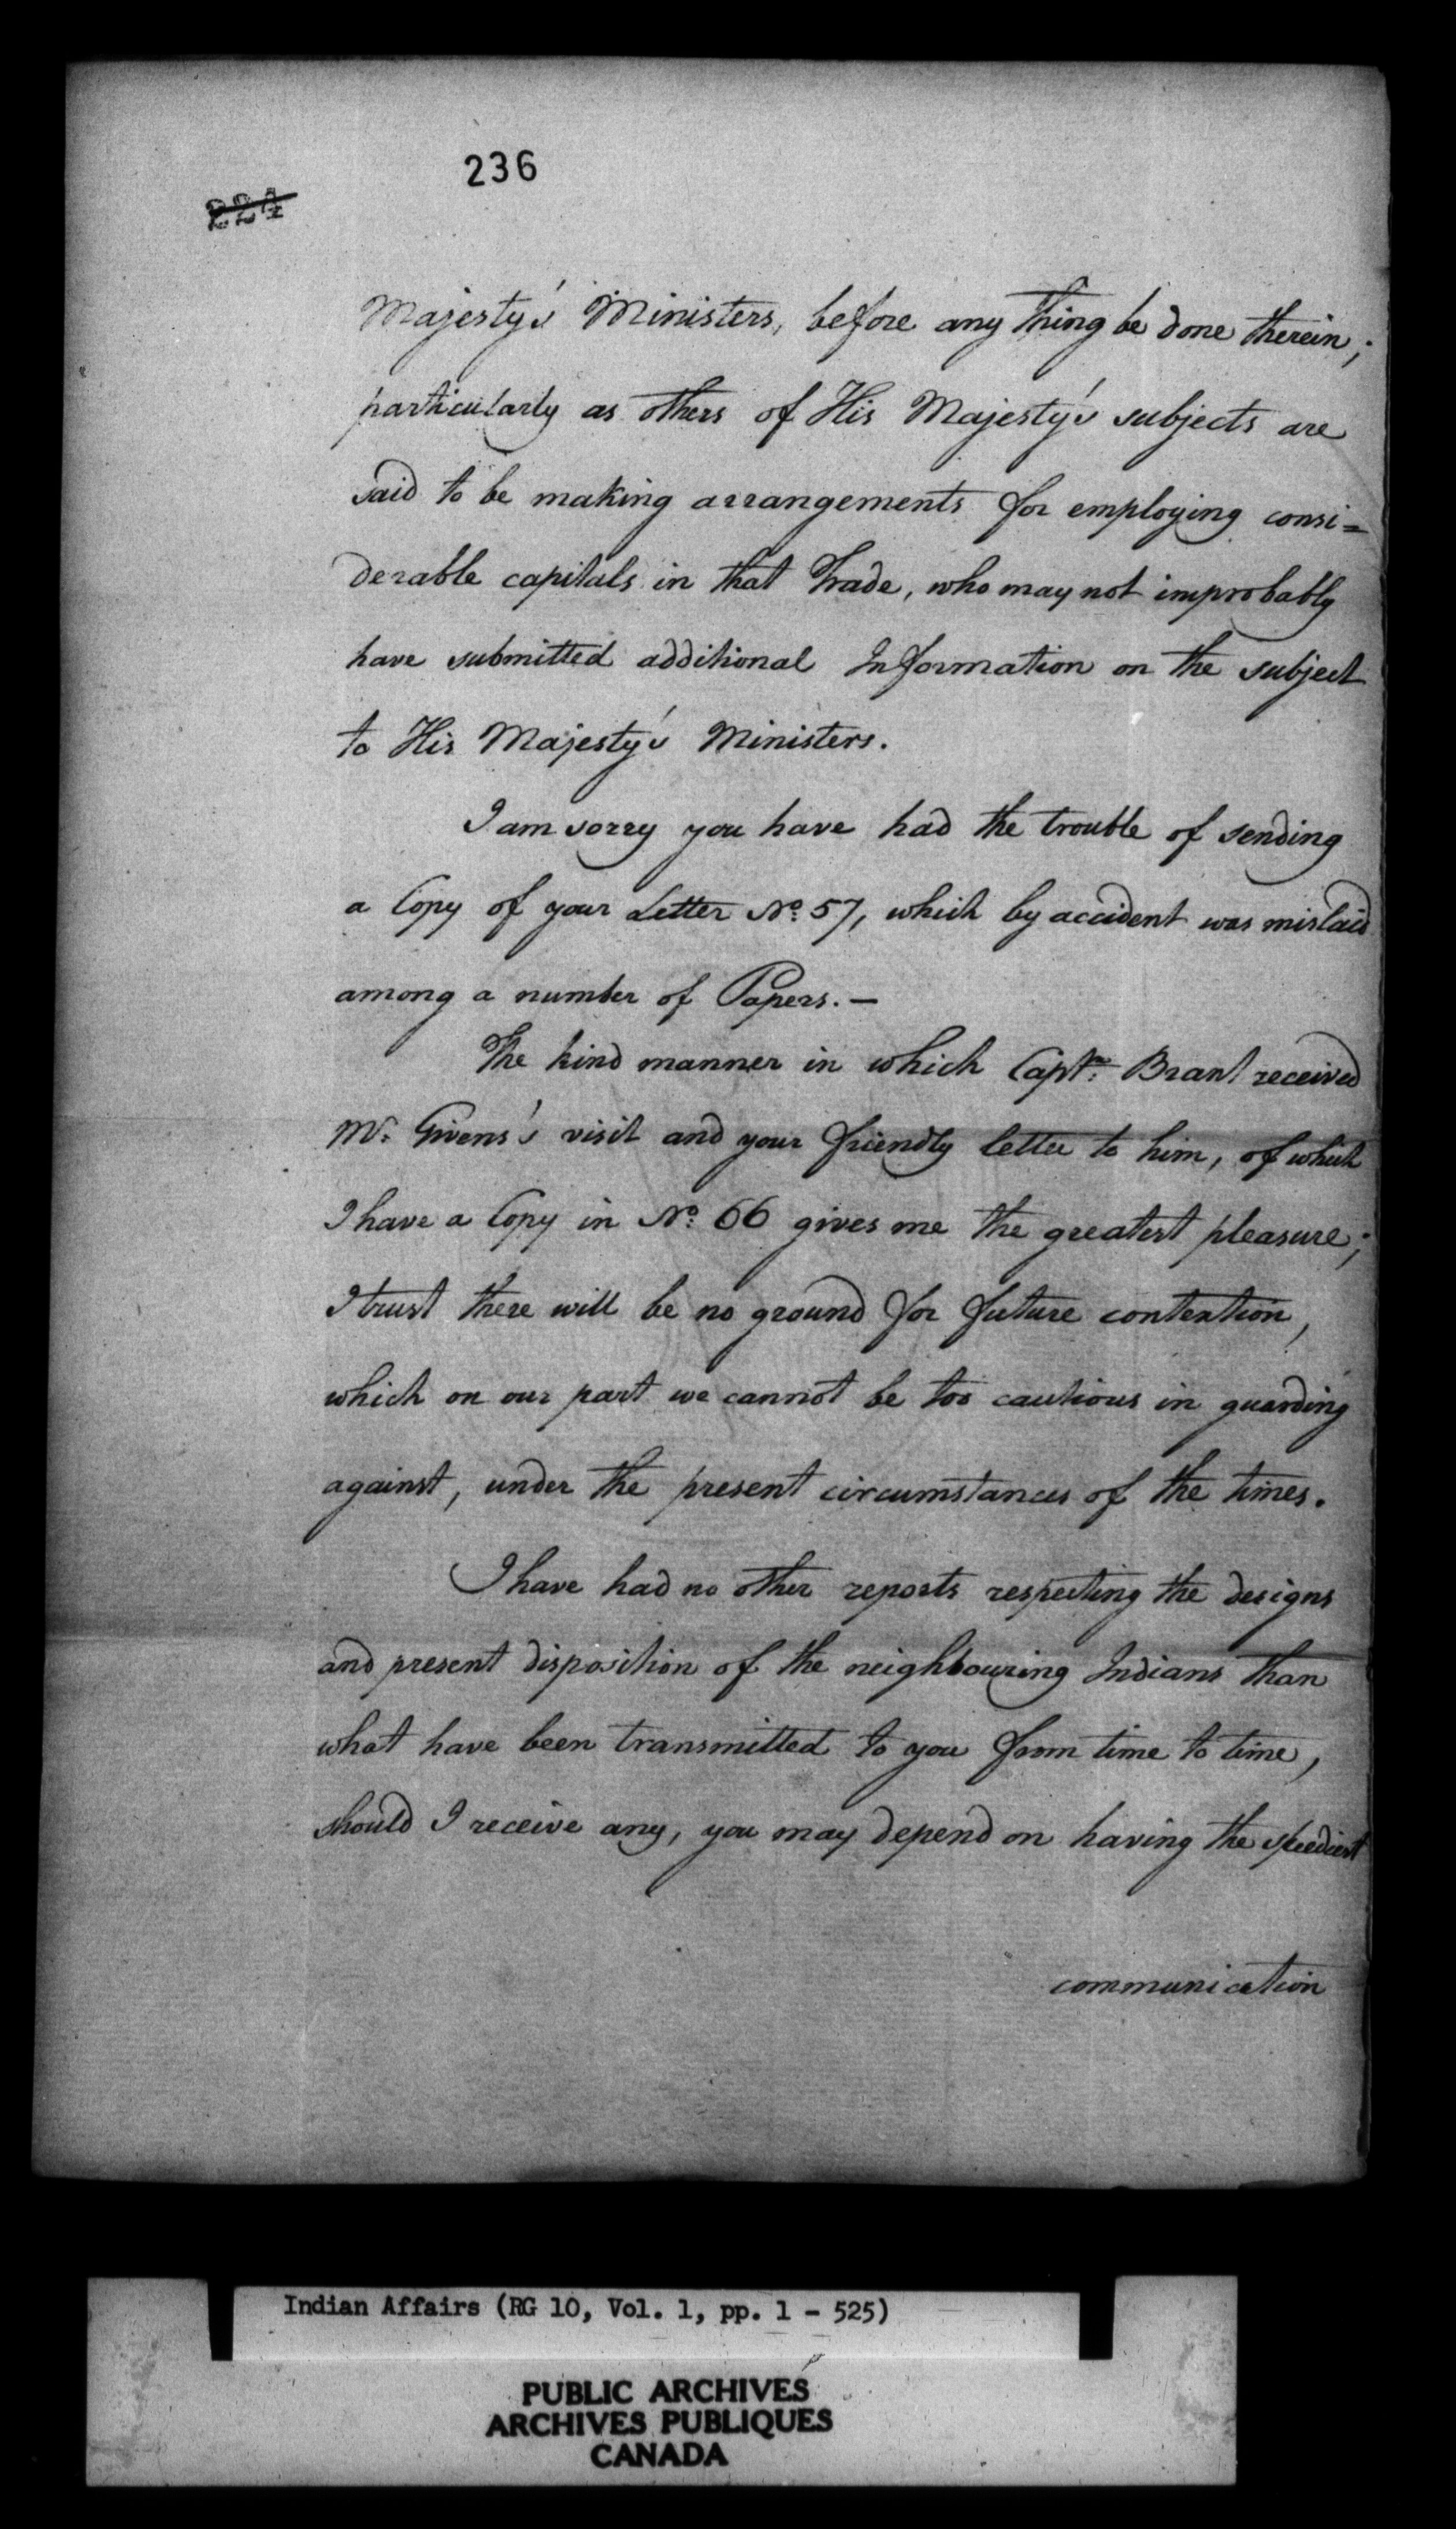 236
224
Majesty's Ministers, before any Thing be done therein;
particularly as others of His Majesty's subjects are
said to be making arrangements for employing consi=
derable capitals in that Trade, who may not improbably
have submitted additional Information on the subject
to His Majesty's Ministers.
I am sorry you have had the trouble of sending
a Copy of your Letter No. 57, which by accident was mislaid
among a number of Papers. —
The kind manner in which Captn. Brant received
Mr. Givens's visit and your friendly letter to him, of which
I have a Copy in No. 66 gives me the greatest pleasure;
I trust there will be no ground for future contention,
which on our part we cannot be too cautious in guarding
against, under the present circumstances of the times.
I have had no other reports respecting the designs
and present disposition of the neighbouring Indians than
what have been transmitted to you from time to time,
should I receive any, you may depend on having the speediest
communication
Indian Affairs (RG 10, Vol. 1, pp. 1 - 525)
PUBLIC ARCHIVES
ARCHIVES PUBLIQUES
CANADA